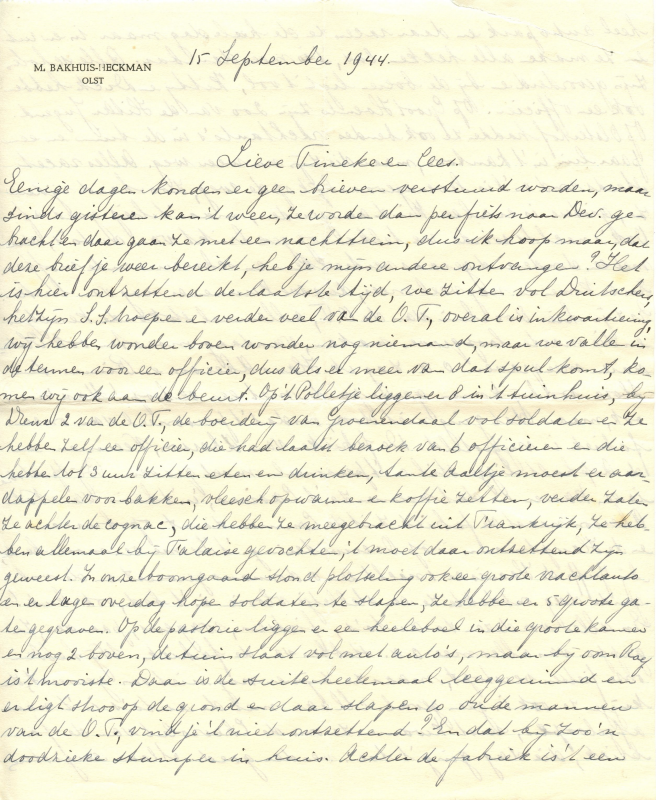 M. BAKHUIS-HECKMAN
OLST
15 September 1944.
Lieve Tineke en Cees.
Eenige dagen konden er geen brieven verstuurd worden, maar
sinds gisteren kan 't weer, ze worden dan per fiets naar Dev. ge-
bracht en daar gaan ze met een nachttrein, dus ik hoop maar, dat
deze brief je weer bereikt, heb je mijn andere ontvangen? Het
is hier ontzettend de laatste tijd, we zitten vol Duitschers,
het zijn S.S. troepen en verder veel van de O.T., overal is inkwartiering,
wij hebben wonder boven wonder nog niemand, maar we vallen in
de termen voor een officier, dus als er meer van dat spul komt, ko-
men wij ook aan de beurt. Op 't Polletje liggen er 8 in 't tuinhuis, bij
2 van de O.T., de boerderij van Groenendaal vol soldaten en ze
hebben zelf een officier, die had laatst bezoek van 6 officieren en die
hebben tot 3 uur zitten eten en drinken, tante Aaltje moest er aar-
dappelen voor bakken, vleesch opwarmen en koffie zetten, verder zaten
ze achter de cognac, die hebben ze meegebracht uit Frankrijk, ze heb-
ben allemaal bij Falaise gevochten, 't moet daar ontzettend zijn
geweest. In onze boomgaard stond plotseling ook een groote vrachtauto
en er lagen overdag hopen soldaten te slapen, ze hebben er 5 groote ga-
ten gegraven. Op de pastorie liggen er een heeleboel in die groote kamer
en nog 2 boven, de tuin staat vol met auto's, maar bij oom
is 't mooiste. Daar is de suite heelemaal leeggeruimd en
er ligt stroo op de grond en daar slapen 10 oude mannen
van de O.T., vind je 't niet ontzettend? En dat bij zoo'n
doodzieke stumper in huis. Achter de fabriek is 't een